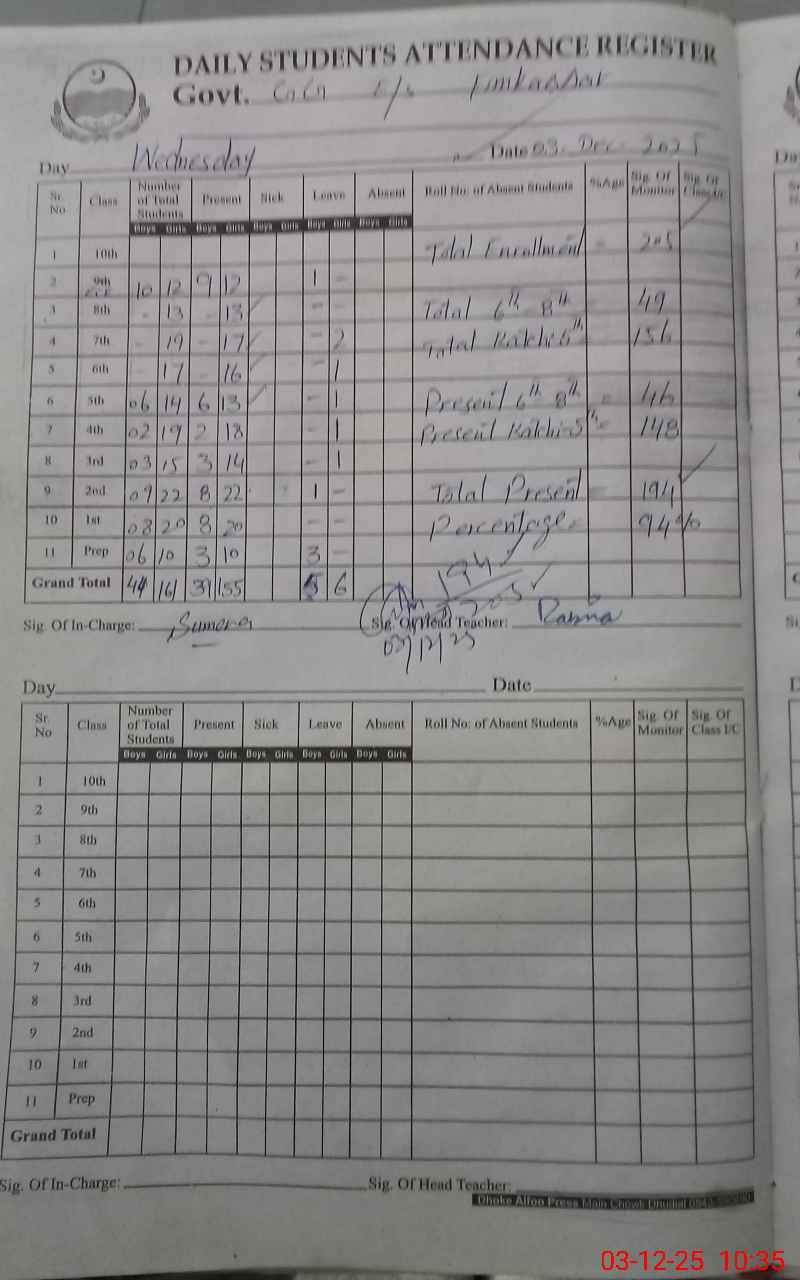 DAILY STUDENTS ATTENDANCE REGISTER
Govt.
Day Wednesday Date 03. Dec. 2025
Sr. No Class Number of Total Students Present Sick Leave Absent Roll No: of Absent Students %Age Sig. Of Monitor Sig. Of Class I/C
Boys Girls Boys Girls Boys Girls Boys Girls Boys Girls
1 10th Total Enrollment = 205
2 9th 10 12 9 12 1 -
3 8th - 13 - 13 - - Total 6th 8th 49
4 7th - 19 - 17 - 2 Total Katchi 5th 156
5 6th - 17 - 16 - 1
6 5th 06 14 6 13 - 1 Present 6th 8th = 46
7 4th 02 19 2 18 - 1 Present Katchi-5th = 148
8 3rd 03 15 3 14 - 1
9 2nd 09 22 8 22 1 - Total Present 194
10 1st 08 20 8 20 - - Percentage = 94%
11 Prep 06 10 3 10 3 -
Grand Total 44 161 39 155 5 6 194
205
Sig. Of In-Charge: Sumera Sig. Of Head Teacher: Rabina
03/12/25
Day Date
Sr. No Class Number of Total Students Present Sick Leave Absent Roll No: of Absent Students %Age Sig. Of Monitor Sig. Of Class I/C
Boys Girls Boys Girls Boys Girls Boys Girls Boys Girls
1 10th
2 9th
3 8th
4 7th
5 6th
6 5th
7 4th
8 3rd
9 2nd
10 1st
11 Prep
Grand Total
Sig. Of In-Charge: Sig. Of Head Teacher:
Press Main Chowk
03-12-25 10:35